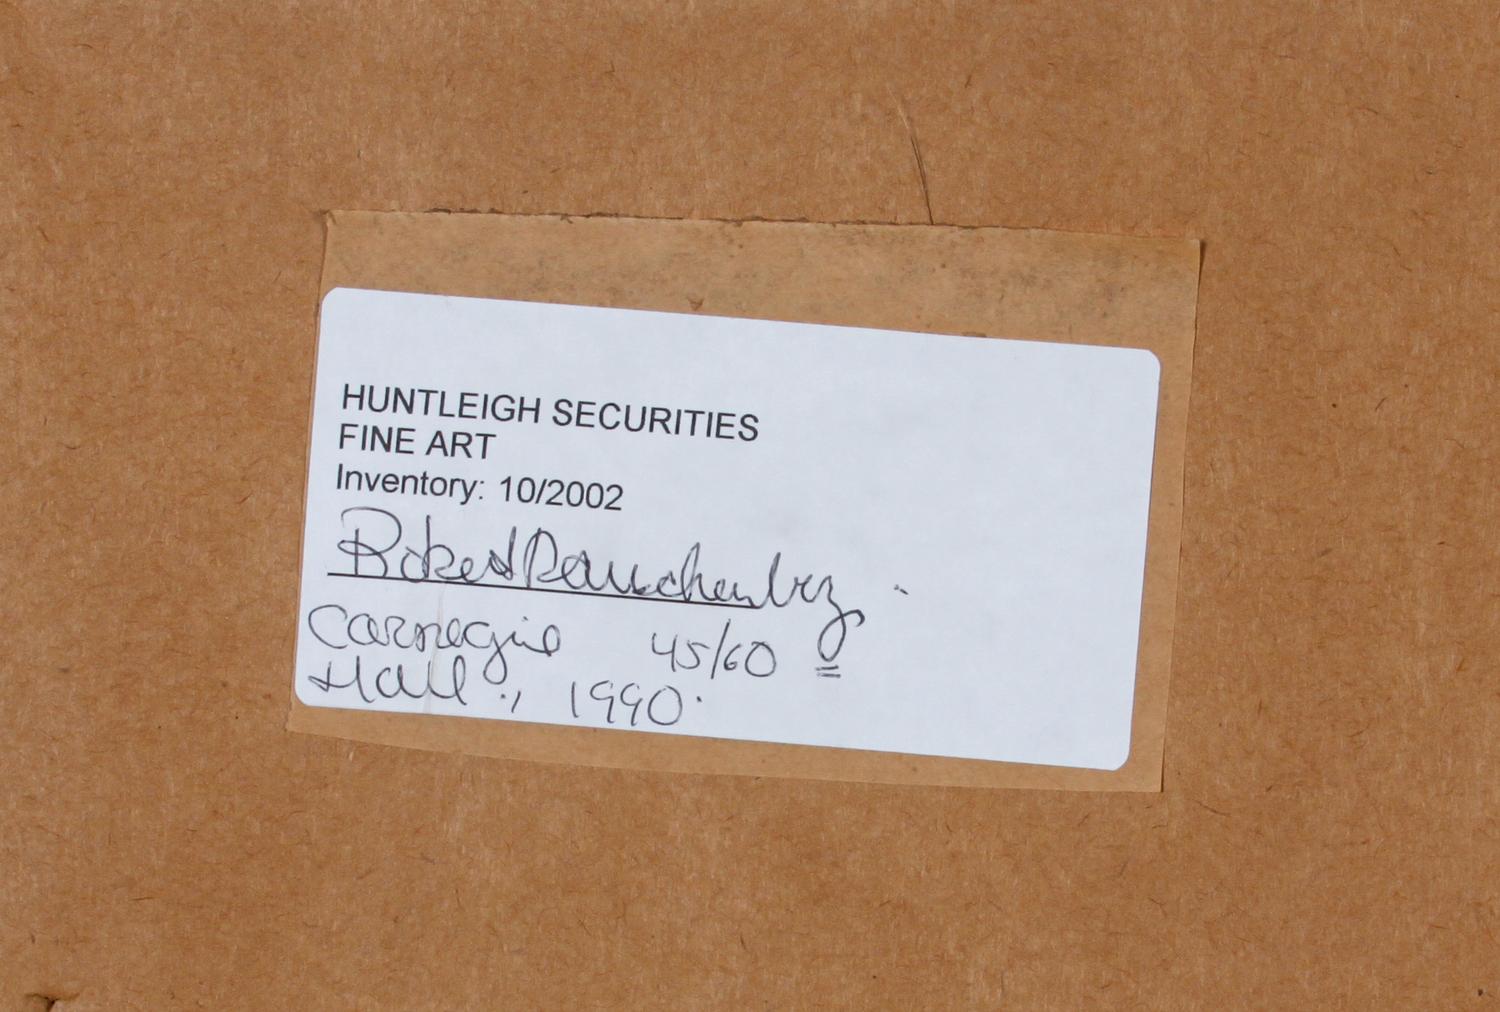 HUNTLEIGH SECURITIES
FINE ART
Inventory: 10/2002
Robert Rauschenberg.
Carnegie 45/60
Hall., 1990.